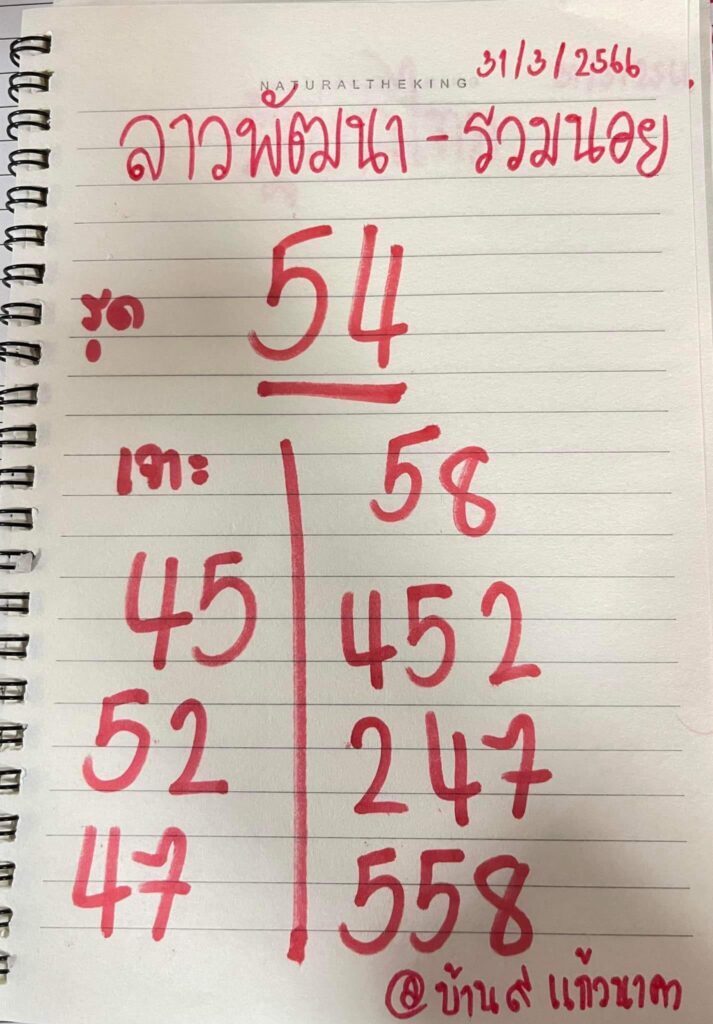 NATURALTHEKING
31/3/2566
ลาวพัฒนา - รวมนอย
รูด 54
เทาะ
45
52
47
58
452
247
558
@บ้าน๙แก้วนาคา